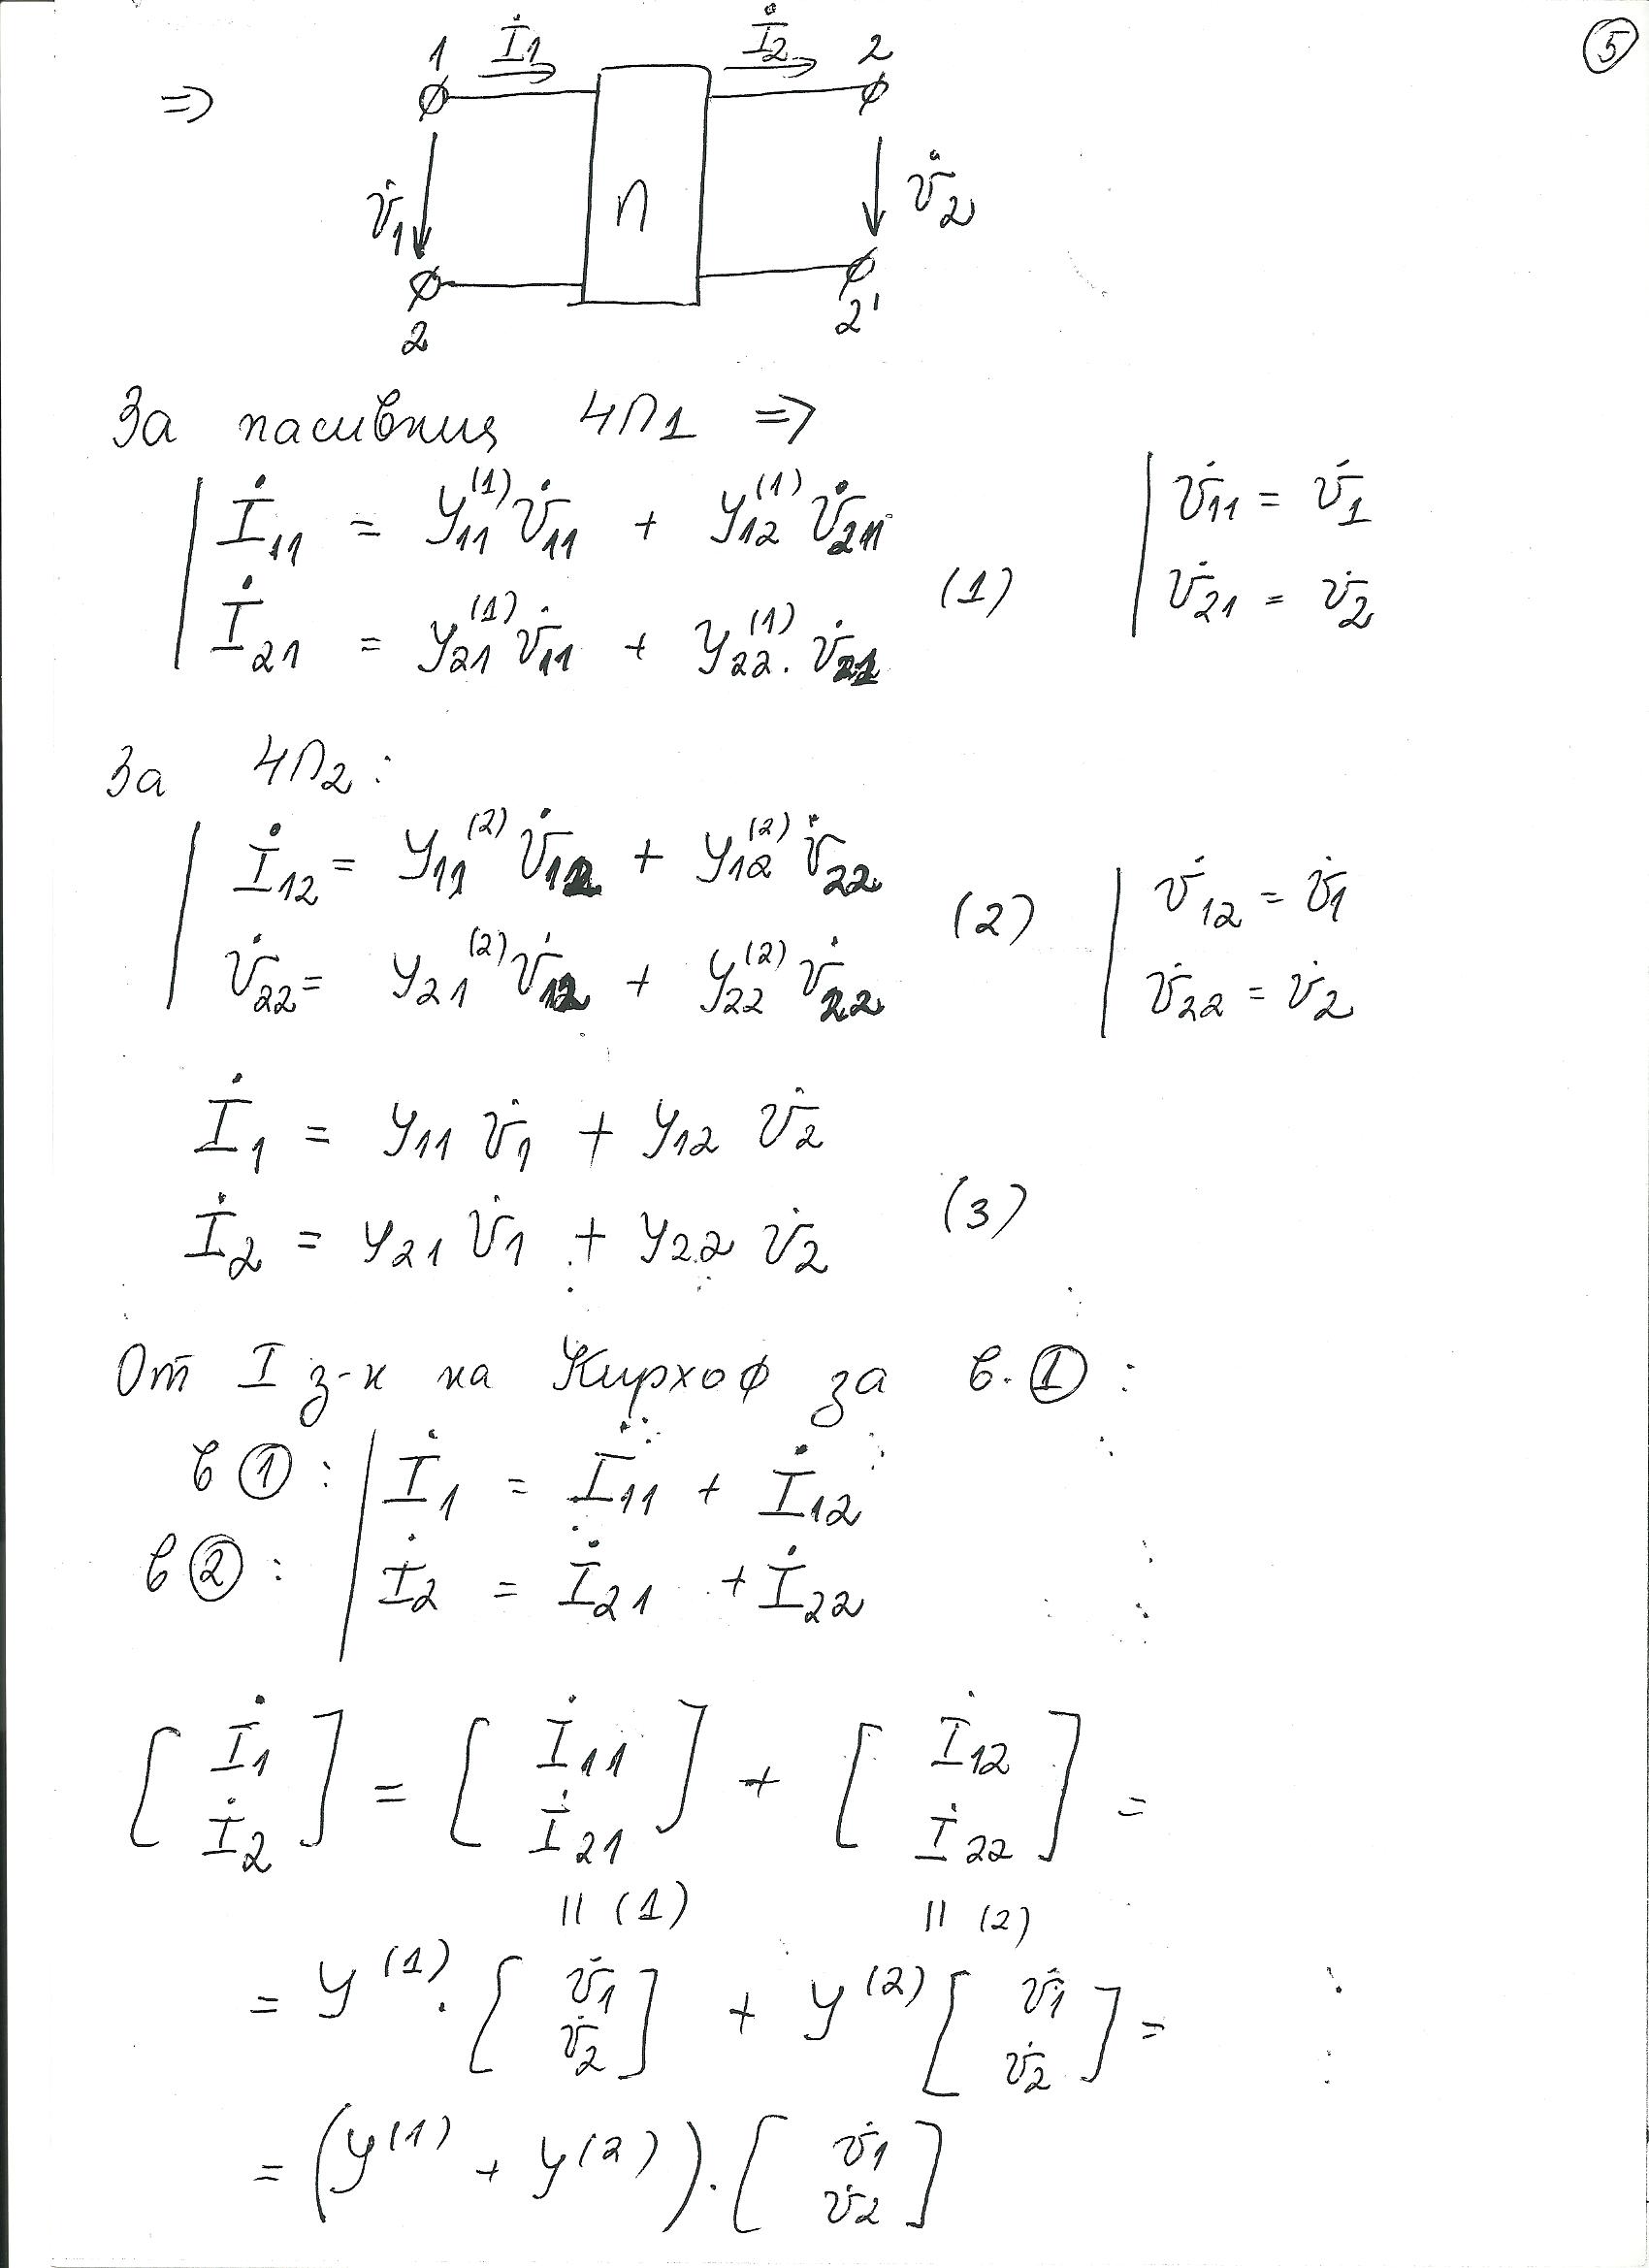 5
1 İ1 İ2 2
⇒
V̇1 П V̇2
2 2'
За пасивния 4П1 ⇒
İ11 = y11^(1) V̇11 + y12^(1) V̇21
(1)
İ21 = y21^(1) V̇11 + y22^(1) . V̇21
V̇11 = V̇1
V̇21 = V̇2
За 4П2 :
İ12 = y11^(2) V̇12 + y12^(2) V̇22
(2)
V̇22 = y21^(2) V̇12 + y22^(2) V̇22
V̇12 = V̇1
V̇22 = V̇2
İ1 = y11 V̇1 + y12 V̇2
(3)
İ2 = y21 V̇1 + y22 V̇2
От I з-н на Кирхоф за в. ① :
в ① : İ1 = İ11 + İ12
в ② : İ2 = İ21 + İ22
[ İ1 İ2 ] = [ İ11 İ21 ] + [ İ12 İ22 ] =
|| (1) || (2)
= y^(1) . [ V̇1 V̇2 ] + y^(2) [ V̇1 V̇2 ] =
= (y^(1) + y^(2)) . [ V̇1 V̇2 ]